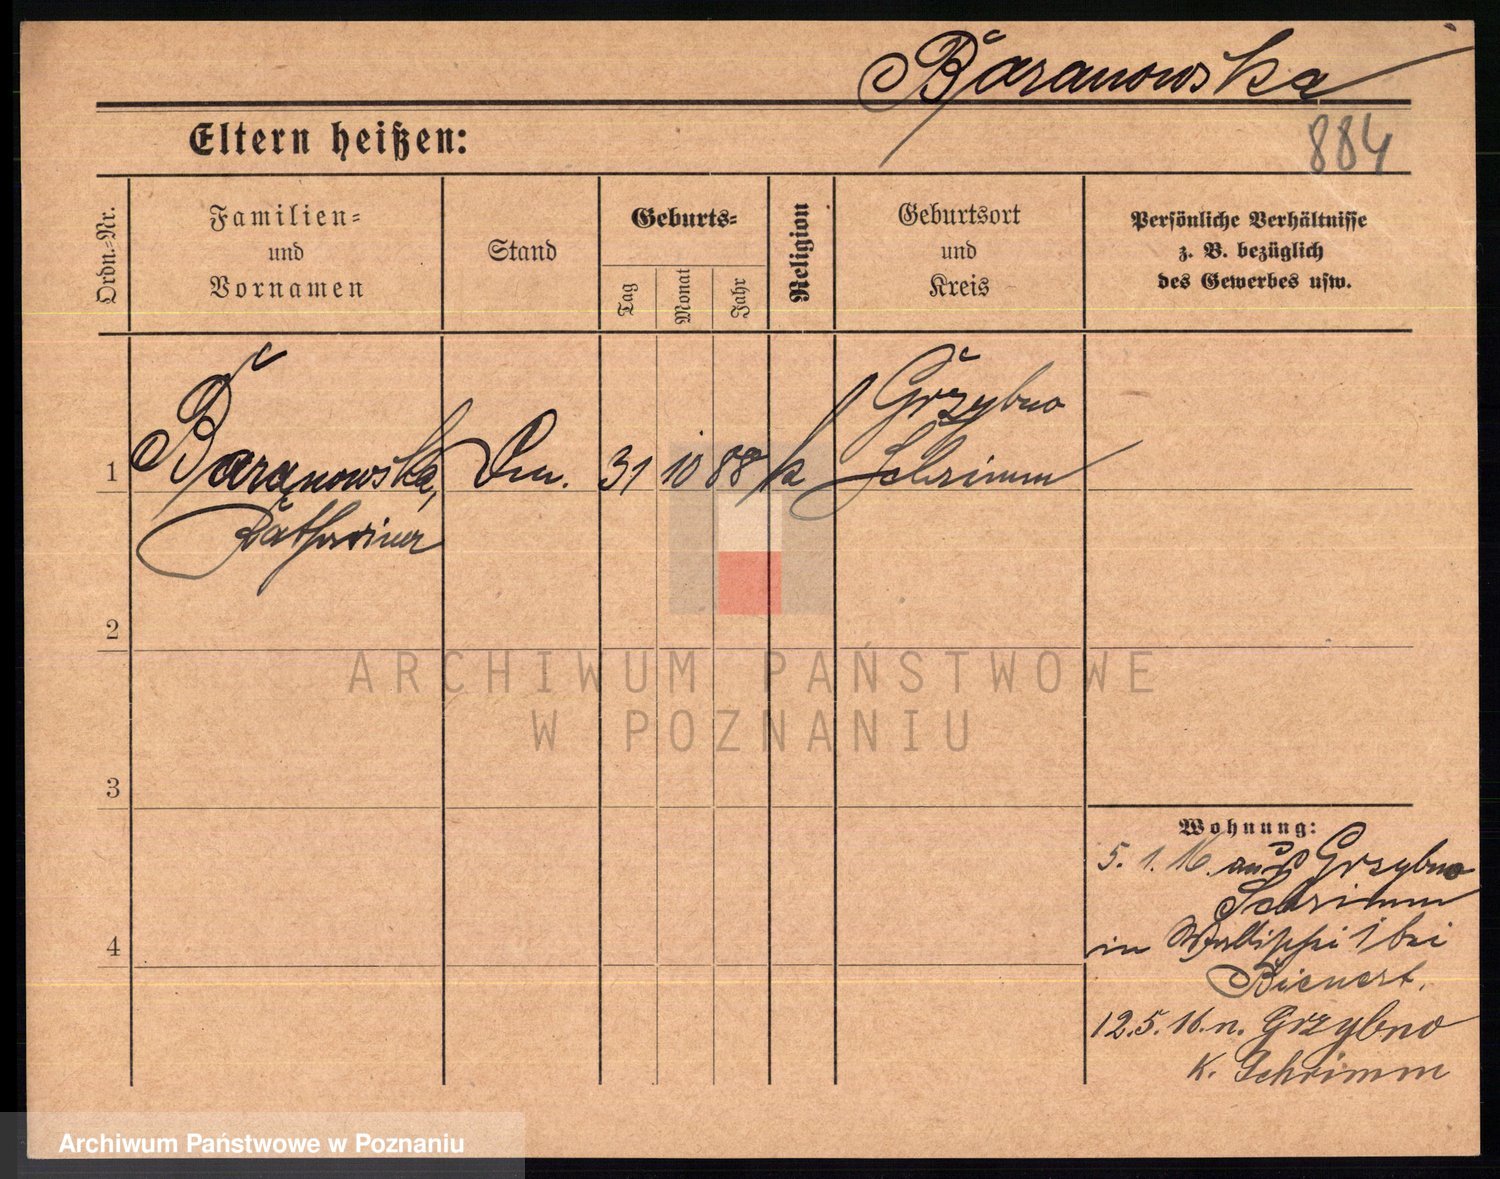 Baranowska
884
Eltern heißen:
Ordn.=Nr.
Familien=
und
Vornamen
Stand
Geburts=
Tag
Monat
Jahr
Religion
Geburtsort
und
Kreis
Persönliche Verhältnisse
z. B. bezüglich
des Gewerbes usw.
1
Baranowska,
Katharina
31 10 88 k
Grzybno
Schrimm
2
3
4
Wohnung:
5. 1. 16. aus Grzybno
Schrimm
in 1 bei
Bienert.
12.5.16. n. Grzybno
K. Schrimm
ARCHIWUM PAŃSTWOWE
W POZNANIU
Archiwum Państwowe w Poznaniu